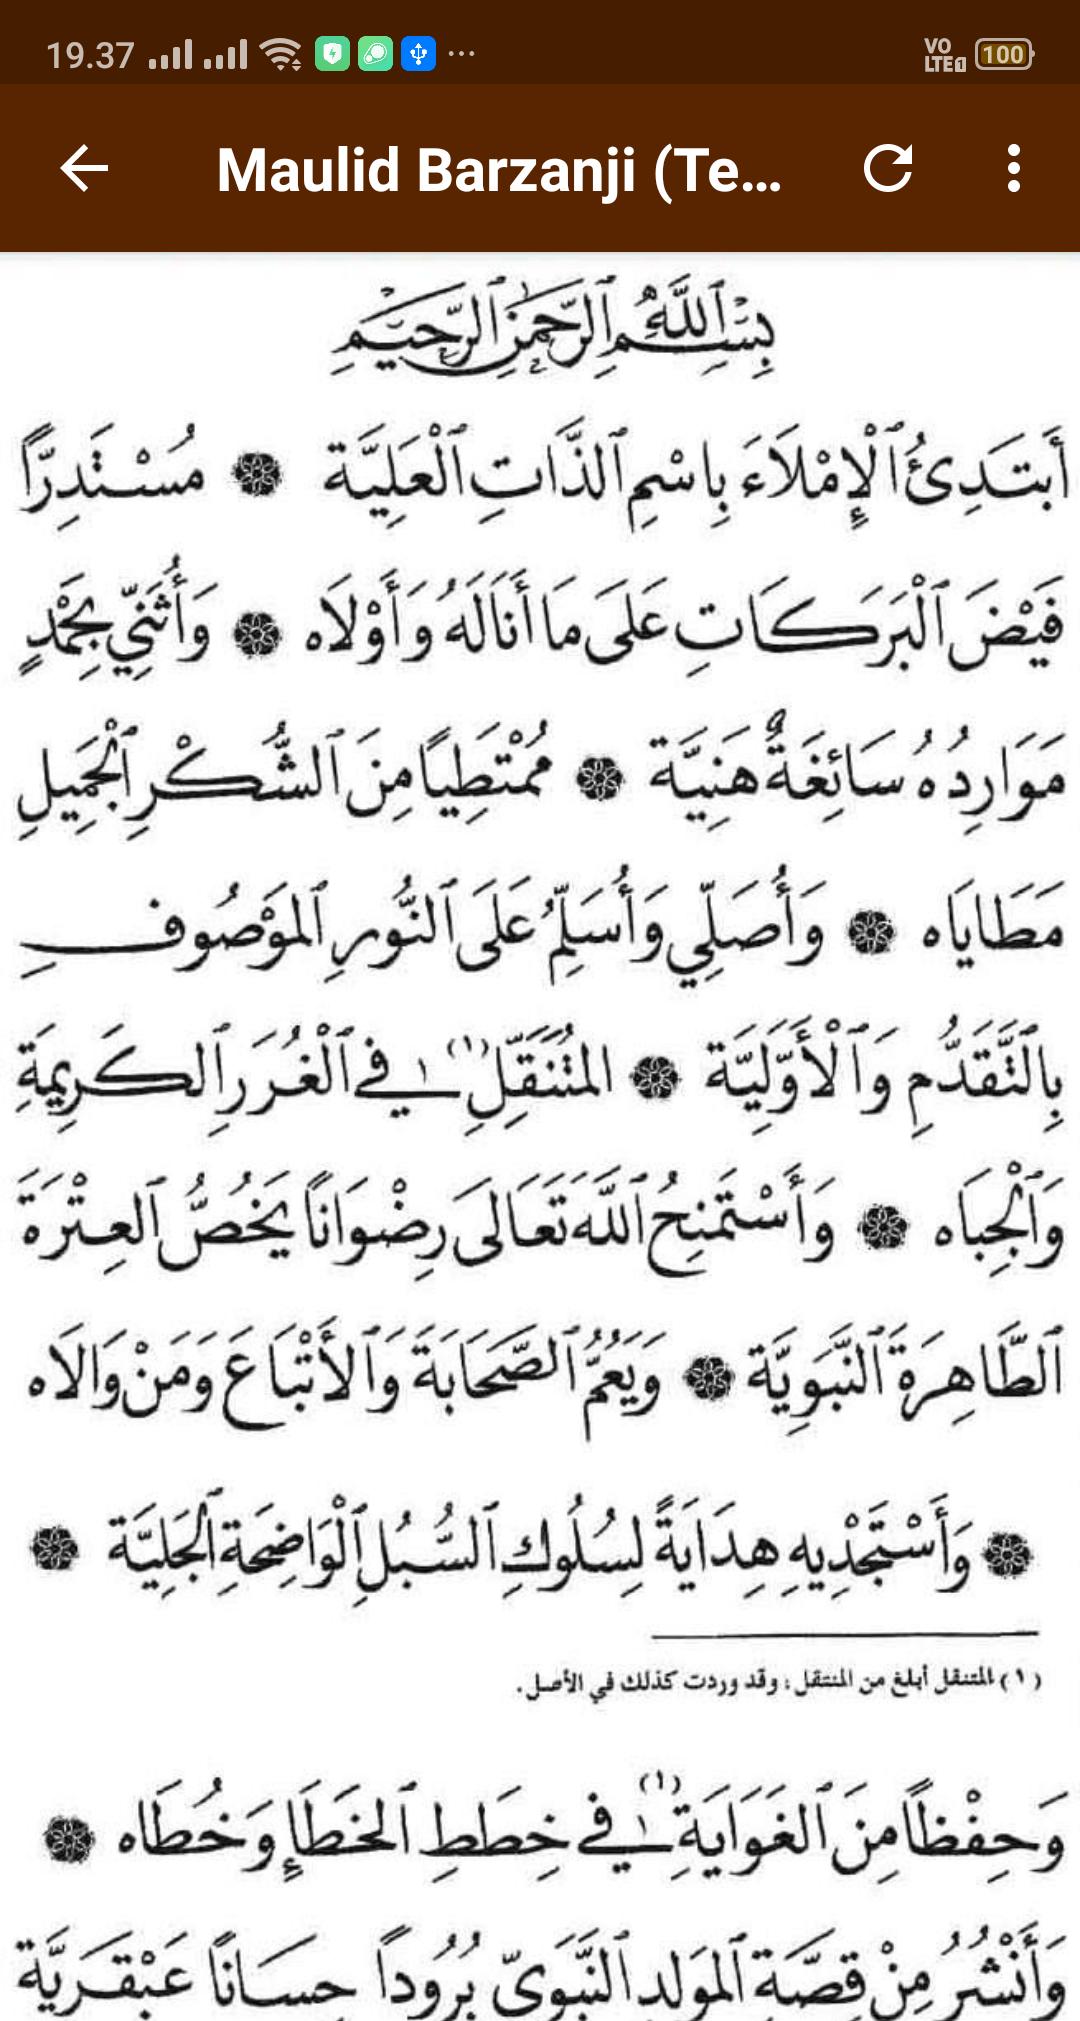 19.37
VO LTE 1
100
Maulid Barzanji (Te...
بِسْمِ ٱللَّهِ ٱلرَّحْمَٰنِ ٱلرَّحِيمِ
أَبْتَدِئُ ٱلْإِمْلَاءَ بِاسْمِ ٱلذَّاتِ ٱلْعَلِيَّة ❁ مُسْتَدِرًّا
فَيْضَ ٱلْبَرَكَاتِ عَلَى مَا أَنَالَهُ وَأَوْلَاه ❁ وَأُثَنِّي بِحَمْدٍ
مَوَارِدُهُ سَائِغَةٌ هَنِيَّة ❁ مُمْتَطِيًا مِنَ ٱلشُّكْرِ ٱلْجَمِيلِ
مَطَايَاه ❁ وَأُصَلِّي وَأُسَلِّمُ عَلَى ٱلنُّورِ ٱلمَوْصُوفِ
بِالتَّقَدُّمِ وَٱلْأَوَّلِيَّة ❁ المُتَنَقِّلِ (١) في ٱلْغُرَرِ ٱلكَرِيمَةِ
وَٱلْجِبَاه ❁ وَأَسْتَمْنِحُ ٱللَّهَ تَعَالَى رِضْوَانًا يَخُصُّ ٱلعِتْرَةَ
ٱلطَّاهِرَةَ ٱلنَّبَوِيَّة ❁ وَيَعُمُّ ٱلصَّحَابَةَ وَٱلأَتْبَاعَ وَمَنْ وَالَاه
❁ وَأَسْتَجْدِيهِ هِدَايَةً لِسُلُوكِ ٱلسُّبُلِ ٱلْوَاضِحَةِ ٱلجَلِيَّة ❁
(١) المتنقل أبلغ من المنتقل؛ وقد وردت كذلك في الأصل.
وَحِفْظًا مِنَ ٱلغَوَايَةِ (١) في خِطَطِ ٱلخَطَإِ وَخُطَاه ❁
وَأَنْشُرُ مِنْ قِصَّةِ ٱلمَوْلِدِ ٱلنَّبَوِيِّ بُرُودًا حِسَانًا عَبْقَرِيَّة